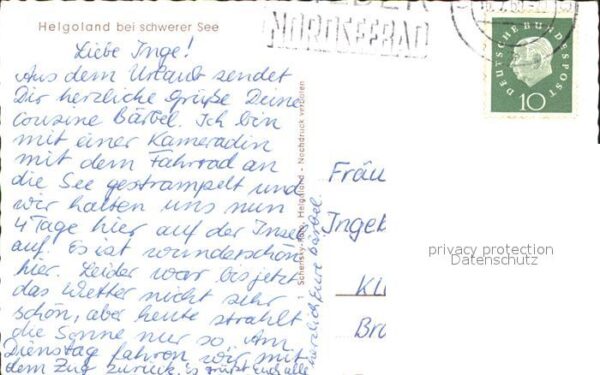 Helgoland bei schwerer See
NORDSEEBAD
DEUTSCHE BUNDESPOST
10
Liebe Inge!
Aus dem Urlaub sendet
Dir herzliche Grüße Deine
Cousine Bärbel. Ich bin
mit einer Kameradin
mit dem Fahrrad an
die See gestrampelt und
wir halten uns nun
4 Tage hier auf der Insel
auf. Es ist wunderschön
hier. Leider war bis jetzt
das Wetter nicht sehr
schön, aber heute strahlt
die Sonne nur so. Am
Dienstag fahren wir mit
dem Zug zurück. Es grüßt Euch alle
herzlich Eure Bärbel.
Schensky-Foto, Helgoland - Nachdruck verboten
Fräu
Ingeb
privacy protection
Datenschutz
Kl
Br